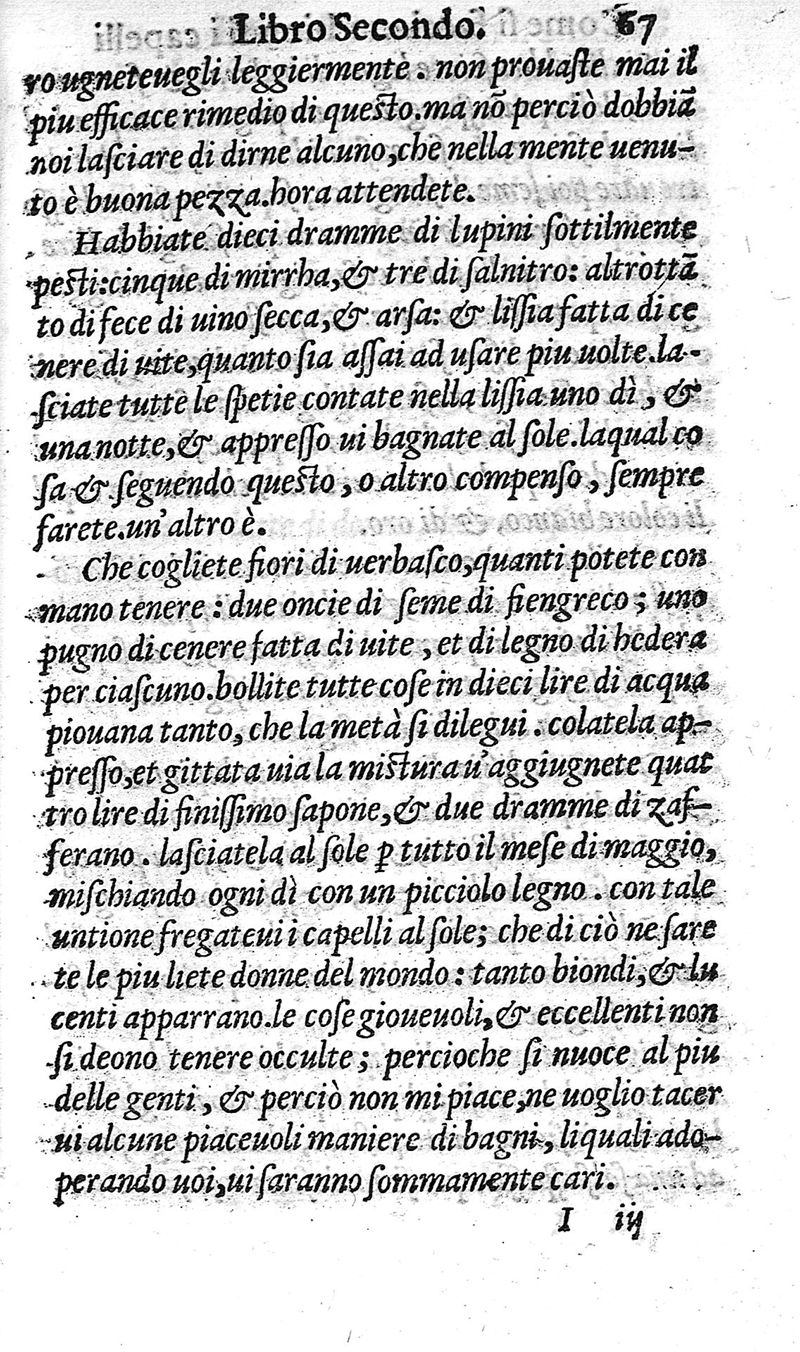 Libro Secondo. 67
ro ugneteuegli leggiermente. non prouaſte mai il
piu efficace rimedio di queſto. ma nõ perciò dobbiã
noi laſciare di dirne alcuno, che nella mente uenu-
to è buona pezza. hora attendete.
Habbiate dieci dramme di lupini ſottilmente
peſti: cinque di mirrha, & tre di ſalnitro: altrottã
to di fece di uino ſecca, & arſa: & liſſia fatta di ce
nere di uite, quanto ſia aſſai ad uſare piu uolte. la-
ſciate tutte le ſpetie contate nella liſſia uno dì, &
una notte, & appreſſo ui bagnate al ſole. laqual co
ſa & ſeguendo queſto, o altro compenſo, ſempre
farete. un'altro è.
Che cogliete fiori di uerbaſco, quanti potete con
mano tenere: due oncie di ſeme di fiengreco; uno
pugno di cenere fatta di uite, et di legno di hedera
per ciaſcuno. bollite tutte coſe in dieci lire di acqua
piouana tanto, che la metà ſi dilegui. colatela ap-
preſſo, et gittata uia la miſtura u'aggiugnete quat
tro lire di finiſſimo ſapone, & due dramme di zaf-
ferano. laſciatela al ſole ꝑ tutto il meſe di maggio,
miſchiando ogni dì con un picciolo legno. con tale
untione fregateui i capelli al ſole; che di ciò ne ſare
te le piu liete donne del mondo: tanto biondi, & lu
centi apparrano. le coſe gioueuoli, & eccellenti non
ſi deono tenere occulte; percioche ſi nuoce al piu
delle genti, & perciò non mi piace, ne uoglio tacer
ui alcune piaceuoli maniere di bagni, li quali ado-
perando uoi, ui ſaranno ſommamente cari.
I iij